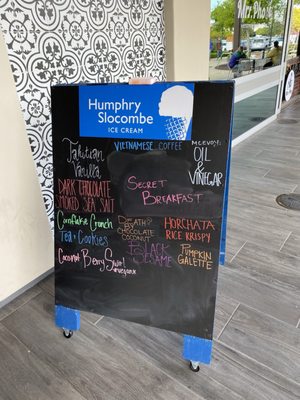 Mr. Pho
Humphry
Slocombe
ICE CREAM
VIETNAMESE COFFEE
Tahitian
Vanilla
McEVOY:
OIL
&
VINEGAR
DARK CHOCOLATE
SMOKED SEA SALT
SECRET
BREAKFAST
Cornflake Crunch
Tea & Cookies
DEATH?
CHOCOLATE
COCONUT
HORCHATA
RICE KRISPY
BLACK
SESAME
PUMPKIN
GALETTE
Coconut Berry Swirl